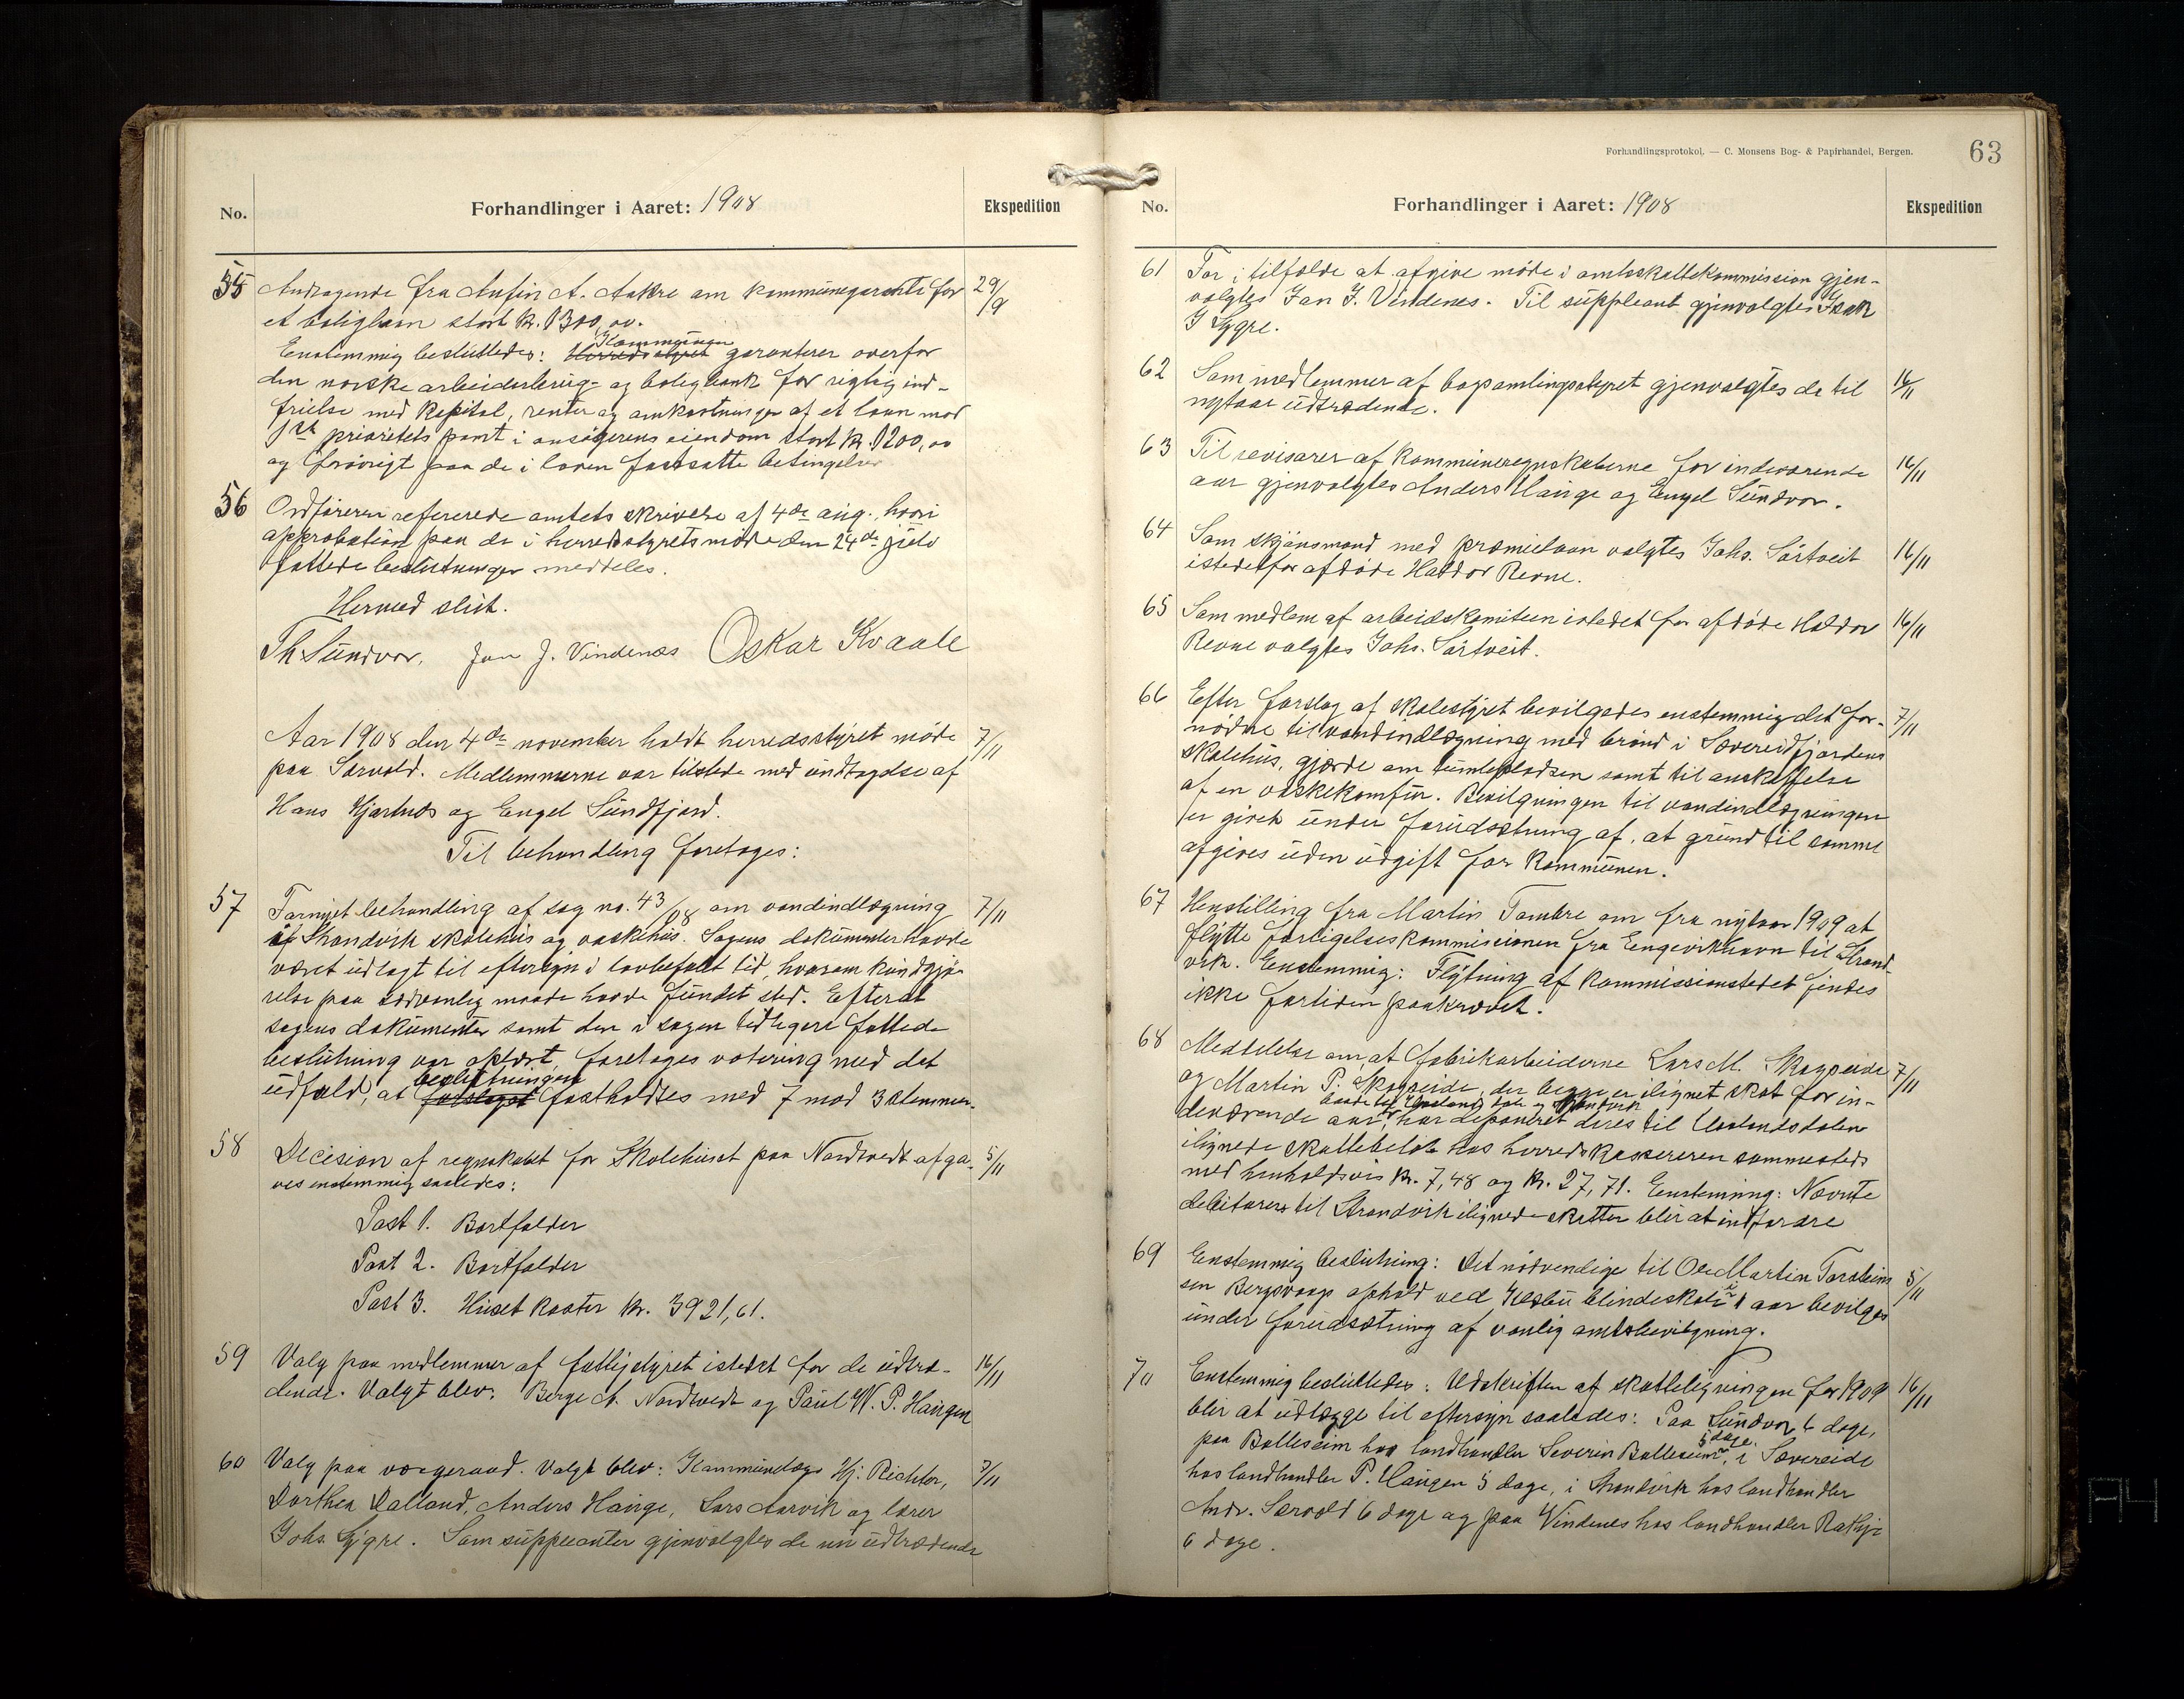 No.
Forhandlinger i Aaret: 1908
Ekspedition
55 Andragende fra Anfin A. Aakre om kommunegaranti for 29/9
et boliglaan stort kr. 1300,00.
Kommunen
Enstemmig besluttedes: Herredsstyret garanterer overfor
den norske arbeiderbrug- og boligbank for rigtig ind-
frielse med kapital, renter og omkostninger af et laan mod
1ste prioritets pant i ansøgerens eiendom stort kr. 1200,00
og forøvrigt paa de i loven fastsatte betingelser
56 Ordføreren refererede amtets skrivelse af 4de aug., hvori
approbation paa de i herredsstyrets møde den 24de juli
fattede beslutninger meddeles.
Hermed slut.
Th Sundvor. Jan J. Vindenes Oskar Kvaale
Aar 1908 den 4de november holdt herredsstyret møde 7/11
paa Sørvold. Medlemmerne var tilstede med undtagelse af
Hans Hjartnes og Engel Sundfjord.
Til behandling foretoges:
57 Fornyet behandling af sag no. 43/08 om vandindlægning 7/11
i Strandvik skolehus og vaskehus. Sagens dokumenter havde
været udlagt til eftersyn i lovbefalt tid, hvorom kundgjø-
relse paa sedvanlig maade havde fundet sted. Efterat
sagens dokumenter samt den i sagen tidligere fattede
beslutning var oplæst, foretoges votering med det
beslutningen
udfald, at forslaget fastholdtes med 7 mod 3 stemmer.
58 Decision af regnskabet for Skolehuset paa Nordtvedt afga- 5/11
ves enstemmig saaledes:
Post 1. Bortfalder
Post 2. Bortfalder
Post 3. Huset koster kr. 3921,61.
59 Valg paa medlemmer af fattigstyret istedet for de udtræ- 16/11
dende. Valgt blev: Berge A. Nordtvedt og Paul W. P. Haugen
60 Valg paa vergeraad. Valgt blev: Kommunelæge Hj. Richter, 7/11
Dorthea Dalland, Anders Hauge, Lars Aarvik og lærer
Johs. Lygre. Som suppleanter gjenvalgtes de nu udtrædende
Forhandlingsprotokol. — C. Monsens Bog- & Papirhandel, Bergen.
63
No.
Forhandlinger i Aaret: 1908
Ekspedition
61 For i tilfælde at afgive møde i amtsskattekommission gjen-
valgtes Jan J. Vindenes. Til suppleant gjenvalgtes Isak
J Lygre.
62 Som medlemmer af bogsamlingsstyret gjenvalgtes de til 16/11
nytaar udtrædende.
63 Til revisorer af kommuneregnskaberne for indeværende 16/11
aar gjenvalgtes Anders Hauge og Engel Sundvor.
64 Som skjønsmand med præmielaan valgtes Johs. Sørtveit 16/11
istedetfor afdøde Haldor Revne.
65 Som medlem af arbeidskomiteen istedet for afdøde Haldor 16/11
Revne valgtes Johs. Sørtveit.
66 Efter forslag af skolestyret bevilgedes enstemmig det for- 7/11
nødne til vandindlægning med brønd i Sævereidfjordens
skolehus, gjærde om tumlepladsen samt til anskaffelse
af en vaskekomfur. Bevilgningen til vandindlægningen
er givet under forudsætning af, at grund til samme
afgives uden udgift for kommunen.
67 Henstilling fra Martin Tombre om fra nytaar 1909 at
flytte forligelseskommissionen fra Engevikhavn til Strand-
vik. Enstemmig: Flytning af kommissionsstedet findes
ikke fortiden paakrævet.
68 Meddelelse om, at fabrikarbeiderne Lars M. Skogseide 7/11
og Martin P. Skogseide, der begge er ilignet skat for in-
baade til Hoslands dale og Strandvik
deværende aar, har deponeret deres til Hoslandsdalen
ilignede skattebeløb hos herredskassereren sammesteds
med henholdsvis kr. 7,48 og kr. 27,71. Enstemmig: Nævnte
debitorers til Strandvik ilignede skatter blir at indfordre
69 Enstemmig beslutning: Det nødvendige til Ole Martin Torstein- 5/11
sen Bergsvaags ophold ved blindeskole i 1 aar bevilges
under forudsætning af vanlig amtsbevilgning.
70 Enstemmig besluttedes: Udskriften af skatteligningen for 1909 16/11
blir at udlægge til eftersyn saaledes: Paa Sundvor 6 dage,
5 dage
paa Bolleseim hos landhandler Severin Bolleseim, i Sævereide
hos landhandler P. Haugen 5 dage, i Strandvik hos landhandler
Andr. Sørvold 6 dage og paa Vindenes hos landhandler Rathje
6 dage.